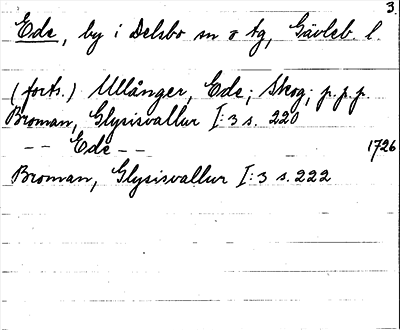 3.
Ede, by i Delsbo sn o tg, Gävleb. l.
(forts.) Ullånger, Ede; Skog; p.p.p.
Broman, Glysisvallur I:3 s. 220
-- Ede -- 1726
Broman, Glysisvallur I:3 s. 222